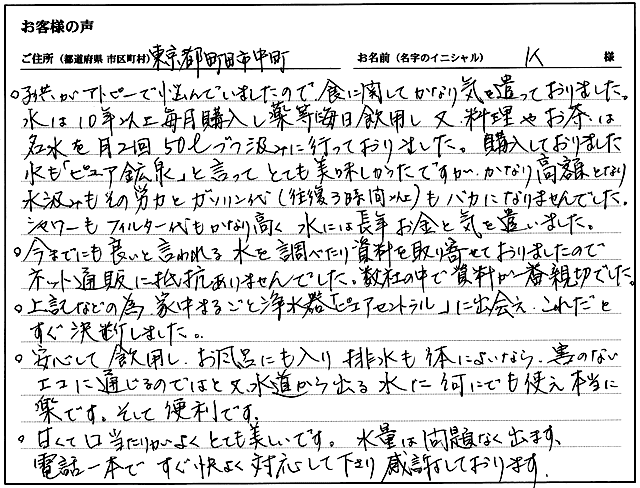 お客様の声
ご住所（都道府県 市区町村）東京都町田市中町 お名前（名字のイニシャル） K 様
○子供がアトピーで悩んでいましたので食に関してかなり気を遣っておりました。
水は10年以上毎月購入し薬等毎日飲用し又、料理やお茶は
名水を月2回50ℓづつ汲みに行っておりました。購入しておりました
水も「ピュア鉱泉」と言ってとても美味しかったですが、かなり高額となり
水汲みもその労力とガソリン代（往復3時間以上）もバカになりませんでした。
シャワーもフィルター代もかなり高く 水には長年お金と気を遣いました。
○今までにも良いと言われる水を調べたり資料を取り寄せておりましたので
ネット通販に抵抗ありませんでした。数社の中で資料が一番親切でした。
○上記などの為、家中まるごと浄水器「ピュアセントラル」に出会え、これだと
すぐ決断しました。
○安心して飲用し、お風呂にも入り 排水も体によいなら、害のない
エコに通じるのではと又、水道から出る水に何にでも使え本当に
楽です。そして便利です。
○甘くて口当たりがよくとても美しいです。 水量は問題なく出ます、
電話一本ですぐ快よく対応して下さり感謝しております。